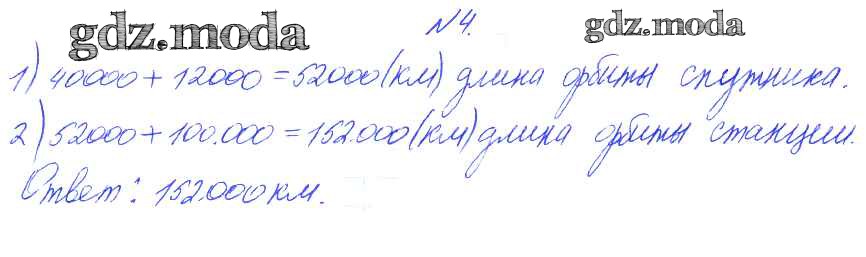 gdz.moda №4. gdz.moda
1) 40000 + 12000 = 52000 (км) длина орбиты спутника.
2) 52000 + 100.000 = 152.000 (км) длина орбиты станции.
Ответ: 152.000 км.